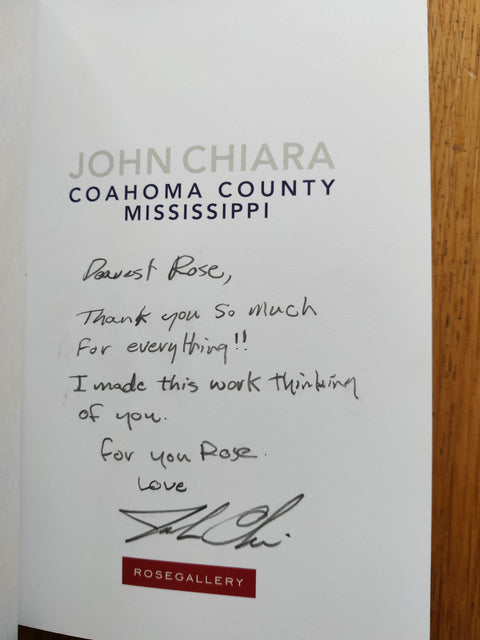 JOHN CHIARA
COAHOMA COUNTY
MISSISSIPPI
Dearest Rose,
Thank you so much
for everything!!
I made this work thinking
of you.
For you Rose.
Love
John Chiara
ROSEGALLERY